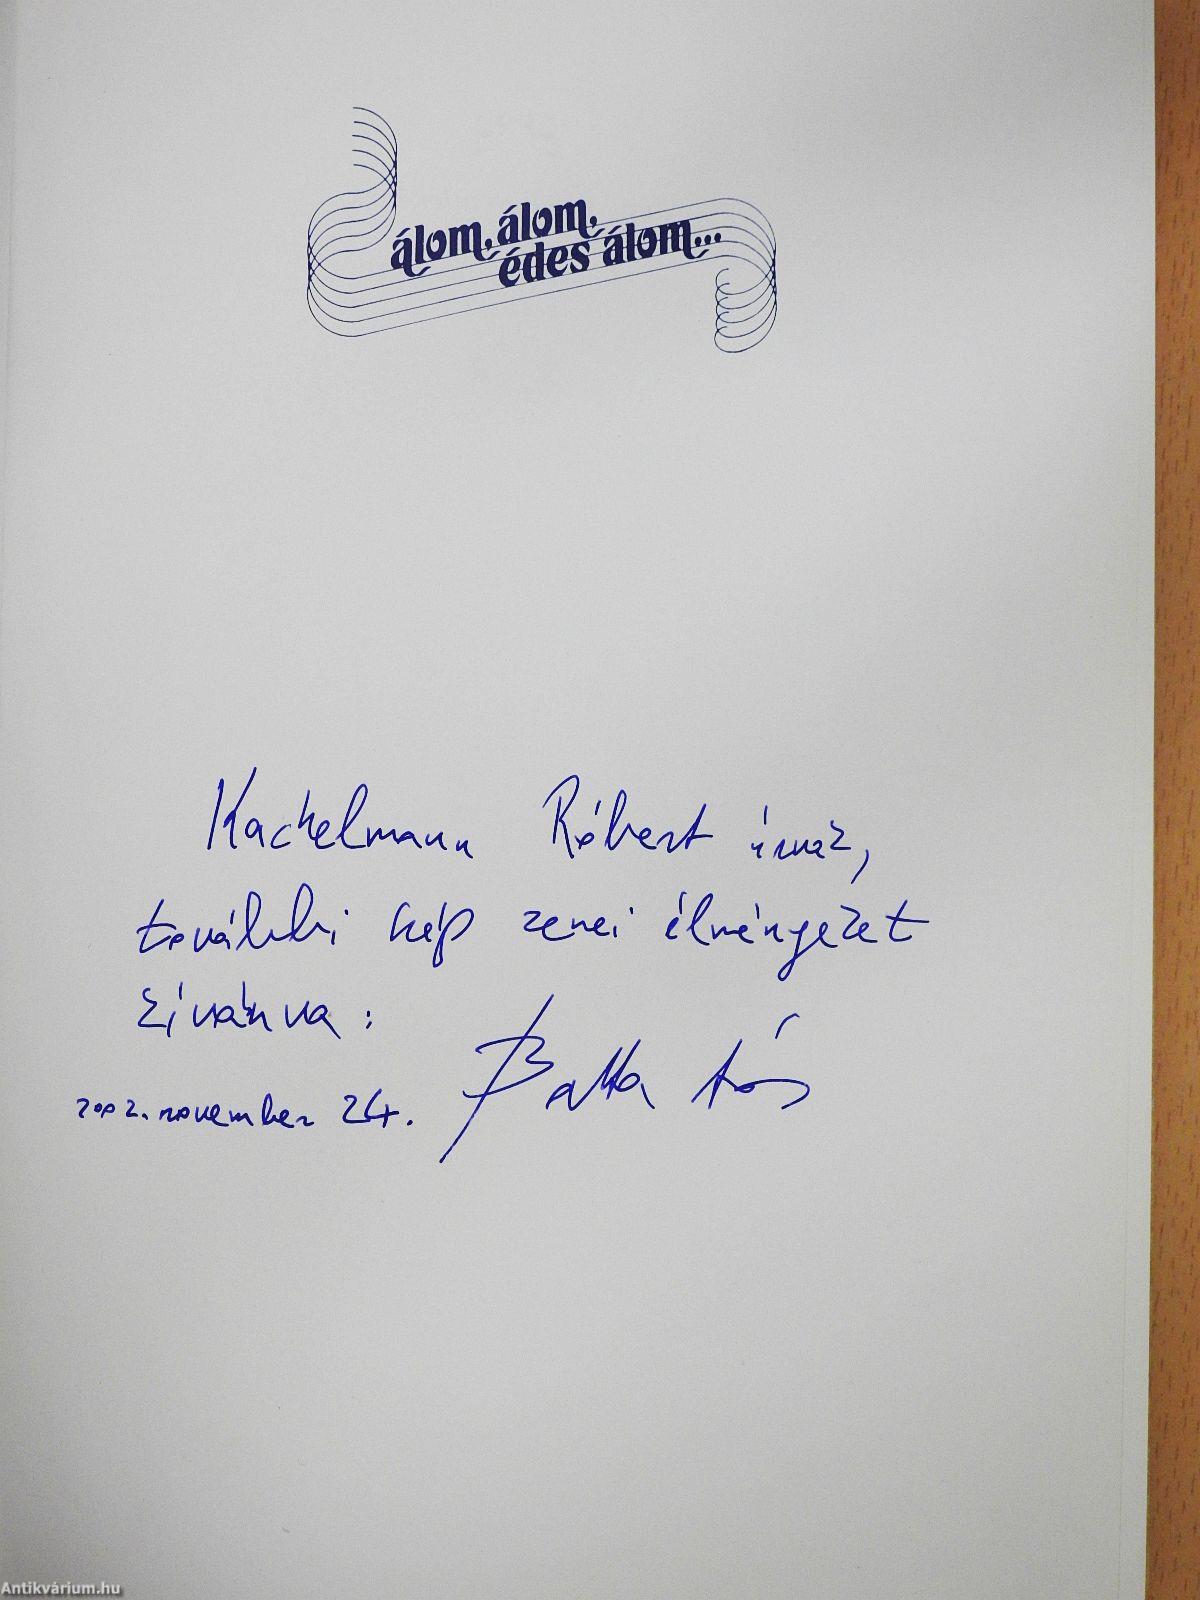 álom, álom,
édes álom...
Kachelmann Róbert úrnak,
további szép zenei élményeket
kívánva:
2002. november 24. Batta András
Antikvárium.hu